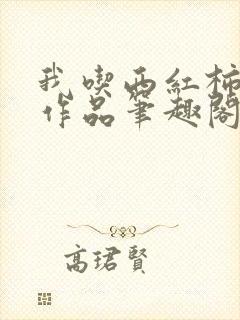 我喫西紅柿
作品筆趣閣
高珺賢